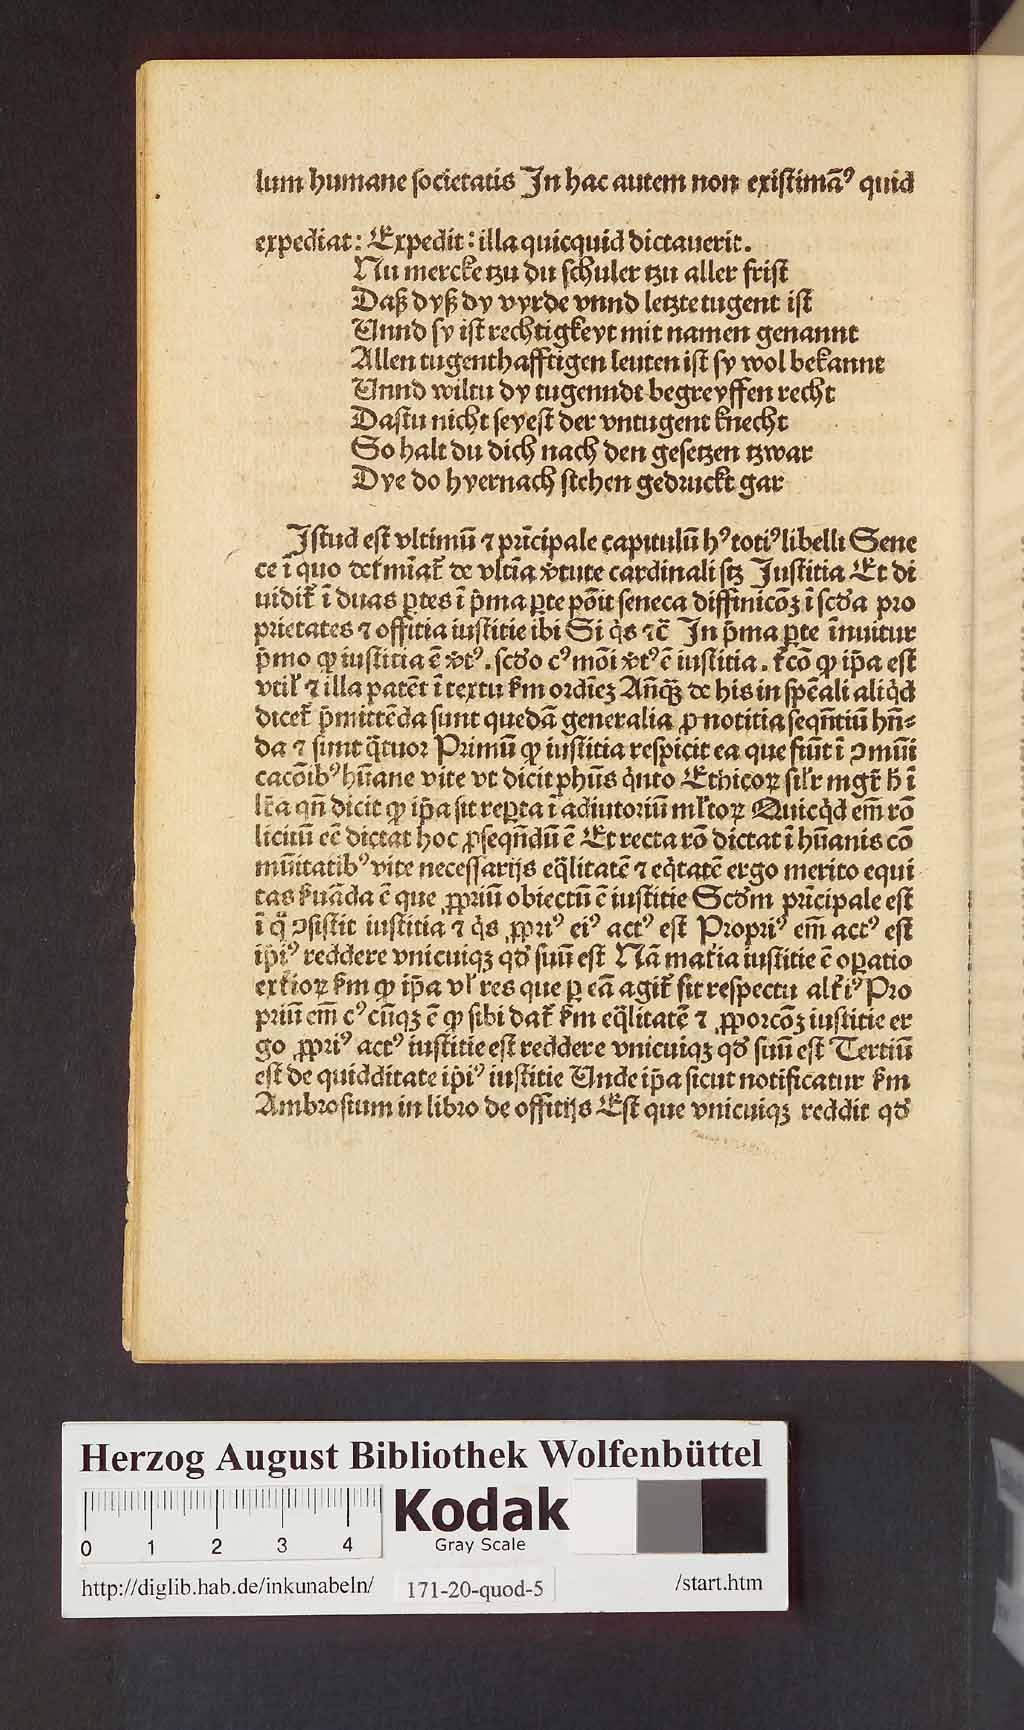 lum humane societatis In hac autem non existimāꝰ quid
expediat: Expedit: illa quicquid dictauerit.
Nu mercke tzu du schuler tzu aller frist
Daß dyß dy vyrde vnnd letzte tugent ist
Unnd sy ist rechtigkeyt mit namen genannt
Allen tugenthafftigen leuten ist sy wol bekannt
Unnd wiltu dy tugenndt begreyffen recht
Dastu nicht seyest der vntugent knecht
So halt du dich nach den gesetzen tzwar
Dye do hyernach stehen gedruckt gar
Istud est vltimū ⁊ prīcipale capitulū hꝰ totiꝰ libelli Sene
ce ī quo det̉mīat̉ de vltīa v̓tute cardinali sꝫ Iustitia Et di
uidit̉ ī duas ꝑtes ī p̄ma ꝑte pōit seneca diffinicōꝫ ī scd̓a pro
prietates ⁊ offitia iustitie ibi Si q̇s ⁊c̄ In p̄ma ꝑte īnuitur
p̄mo ꝙ iustitia ē v̓tꝰ. scd̓o cꝰ mōi v̓tꝰ ē iustitia. t̉cō ꝙ ip̄a est
vtil̓ ⁊ illa patēt ī textu ẜm ordiēꝫ An̄q̄ꝫ de his in sp̄ēali aliq̇d
dicet̉ p̄mittēda sunt quedā generalia ꝓ notitia seqn̄tiū hn̄⸗
da ⁊ sunt q̈tuor Primū ꝙ iustitia respicit ea que fiūt ī ↄmūi
cacōibꝰ hūane vite vt dicit ph̄us q̇nto Ethicoꝝ sil̓r mgr̄ h̄ ī
lr̄a qn̄ dicit ꝙ ip̄a sit reꝑta ī adiutoriū ml̓toꝝ Quicq̇d em̄ rō
licitū eē dictat hoc ꝓseqn̄dū ē Et recta rō dictat ī hūanis cō
mūitatibꝰ vite necessarijs eq̈litatē ⁊ eq̇tatē ergo merito equi
tas ẜuāda ē que ꝓpriū obiectū ē iustitie Scd̓m prīcipale est
ī q̊ ↄsistit iustitia ⁊ q̇s ꝓpriꝰ eiꝰ actꝰ est Propriꝰ em̄ actꝰ est
ip̄iꝰ reddere vnicuiqꝫ qd̓ suū est Nā mat̉ia iustitie ē oꝑatio
ext̉ioꝝ ẜm ꝙ ip̄a vl̓ res que ꝑ eā agit̉ sit respectu alt̉iꝰ Pro
priū em̄ cꝰcūqꝫ ē ꝙ sibi dat̉ ẜm eq̈litatē ⁊ ꝓporcōꝫ iustitie er
go ꝓpriꝰ actꝰ iustitie est reddere vnicuiqꝫ qd̓ suū est Tertiū
est de quidditate ip̄iꝰ iustitie Unde ip̄a sicut notificatur ẜm
Ambrosium in libro de offitijs Est que vnicuiqꝫ reddit qd̓
Herzog August Bibliothek Wolfenbüttel
0 1 2 3 4
Kodak
Gray Scale
http://diglib.hab.de/inkunabeln/ 171-20-quod-5 /start.htm